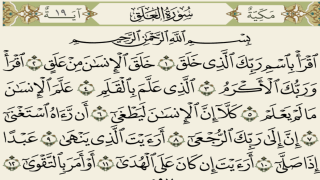 مَكِّيَّة سُورَةُ الْعَلَقِ آيَة ١٩
بِسْمِ اللَّهِ الرَّحْمَٰنِ الرَّحِيمِ
اقْرَأْ بِاسْمِ رَبِّكَ الَّذِي خَلَقَ ١ خَلَقَ الْإِنسَانَ مِنْ عَلَقٍ ٢ اقْرَأْ
وَرَبُّكَ الْأَكْرَمُ ٣ الَّذِي عَلَّمَ بِالْقَلَمِ ٤ عَلَّمَ الْإِنسَانَ
مَا لَمْ يَعْلَمْ ٥ كَلَّا إِنَّ الْإِنسَانَ لَيَطْغَىٰ ٦ أَن رَّءَاهُ اسْتَغْنَىٰ
٧ إِنَّ إِلَىٰ رَبِّكَ الرُّجْعَىٰ ٨ أَرَءَيْتَ الَّذِي يَنْهَىٰ ٩ عَبْدًا
إِذَا صَلَّىٰ ١٠ أَرَءَيْتَ إِن كَانَ عَلَى الْهُدَىٰ ١١ أَوْ أَمَرَ بِالتَّقْوَىٰ ١٢